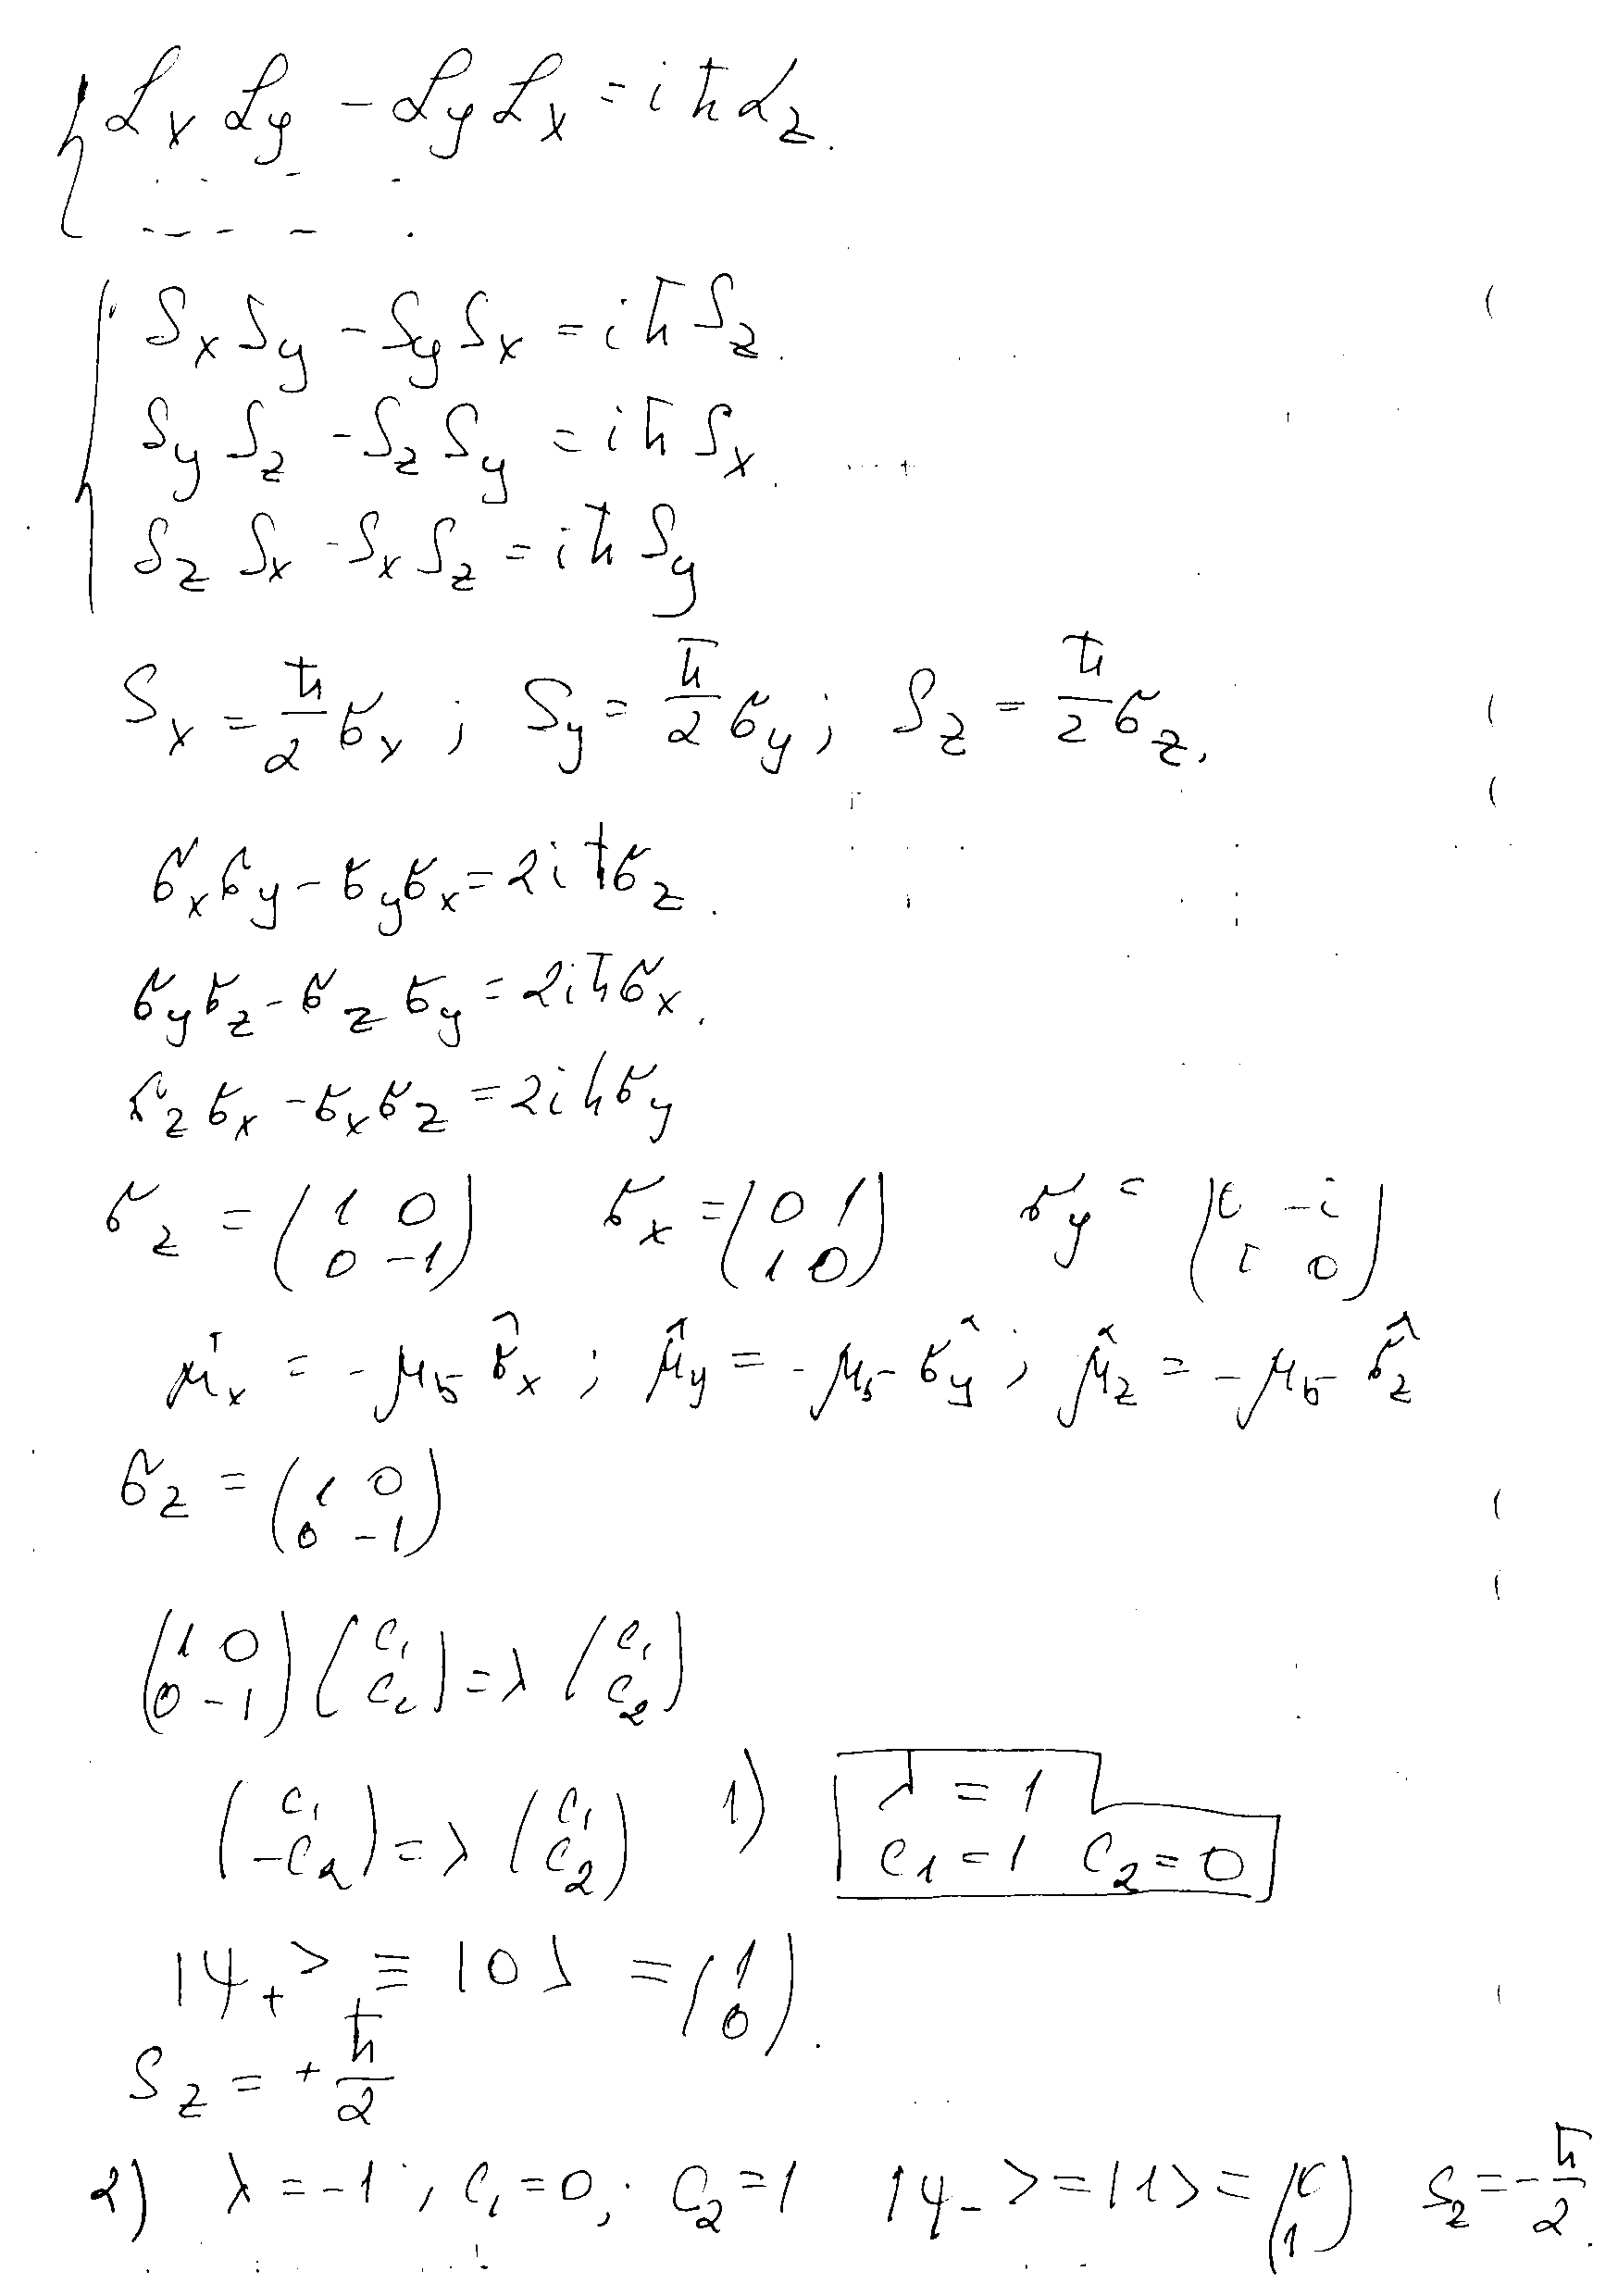 { L_x L_y - L_y L_x = iħ L_z.
- - - -
- - - - .
{ S_x S_y - S_y S_x = iħ S_z.
S_y S_z - S_z S_y = iħ S_x.
S_z S_x - S_x S_z = iħ S_y
S_x = ħ/2 σ_x ; S_y = ħ/2 σ_y ; S_z = ħ/2 σ_z.
σ_x σ_y - σ_y σ_x = 2iħσ_z.
σ_y σ_z - σ_z σ_y = 2iħσ_x.
σ_z σ_x - σ_x σ_z = 2iħσ_y
σ_z = (1 0; 0 -1) σ_x = (0 1; 1 0) σ_y = (0 -i; i 0)
μ̂_x = -μ_Б σ̂_x ; μ̂_y = -μ_Б σ̂_y ; μ̂_z = -μ_Б σ̂_z
σ_z = (1 0; 0 -1)
(1 0; 0 -1) (c_1; c_2) = λ (c_1; c_2)
(c_1; -c_2) = λ (c_1; c_2) 1) λ = 1
c_1 = 1 c_2 = 0
|ψ_+> ≡ |0> = (1; 0).
S_z = + ħ/2
2) λ = -1 ; c_1 = 0 ; c_2 = 1 |ψ_-> = |1> = (0; 1) S_z = -ħ/2.